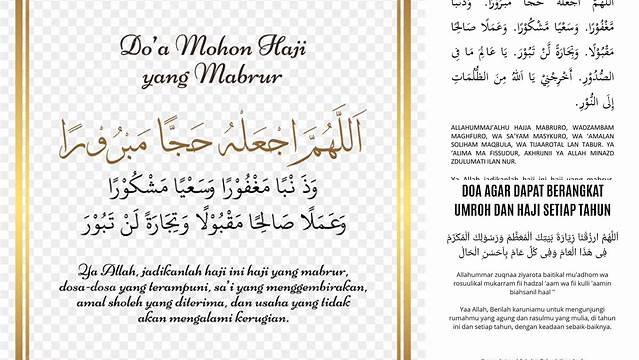 Do'a Mohon Haji
yang Mabrur
اَللّٰهُمَّ اجْعَلْهُ حَجًّا مَبْرُوْرًا
وَذَنْبًا مَغْفُوْرًا وَسَعْيًا مَشْكُوْرًا
وَعَمَلًا صَالِحًا مَقْبُوْلًا وَتِجَارَةً لَنْ تَبُوْرَ
Ya Allah, jadikanlah haji ini haji yang mabrur,
dosa-dosa yang terampuni, sa'i yang menggembirakan,
amal sholeh yang diterima, dan usaha yang tidak
akan mengalami kerugian.
مَغْفُوْرًا. وَسَعْيًا مَشْكُوْرًا. وَعَمَلًا صَالِحًا
مَقْبُوْلًا. وَتِجَارَةً لَّنْ تَبُوْرَ. يَا عَالِمَ مَا فِى
الصُّدُوْرِ. أَخْرِجْنِيْ يَا اَللهُ مِنَ الظُّلُمَاتِ
إِلَى النُّوْرِ.
ALLAHUMMAJ'ALHU HAJJA MABRURO, WADZAMBAM
MAGHFURO, WA SA'YAM MASYKURO, WA 'AMALAN
SOLIHAM MAQBULA, WA TIJAAROTAL LAN TABUR. YA
'ALIMA MA FISSUDUR, AKHRIJNII YA ALLAH MINAZD
ZDULUMATI ILAN NUR.
DOA AGAR DAPAT BERANGKAT
UMROH DAN HAJI SETIAP TAHUN
اَللّٰهُمَّ ارْزُقْنَا زِيَارَةَ بَيْتِكَ الْمُعَظَّمِ وَرَسُوْلِكَ الْمُكَرَّمِ
فِى هٰذَا الْعَامِ وَفِى كُلِّ عَامٍ بِاَحْسَنِ الْحَالِ
Allahummar zuqnaa ziyarota baitikal mu'adhom wa
rosuulikal mukarram fii hadzal 'aam wa fii kulli 'aamin
biahsanil haal "
Yaa Allah, Berilah karuniamu untuk mengunjungi
rumahmu yang agung dan rasulmu yang mulia, di tahun
ini dan setiap tahun, dengan keadaan sebaik-baiknya.